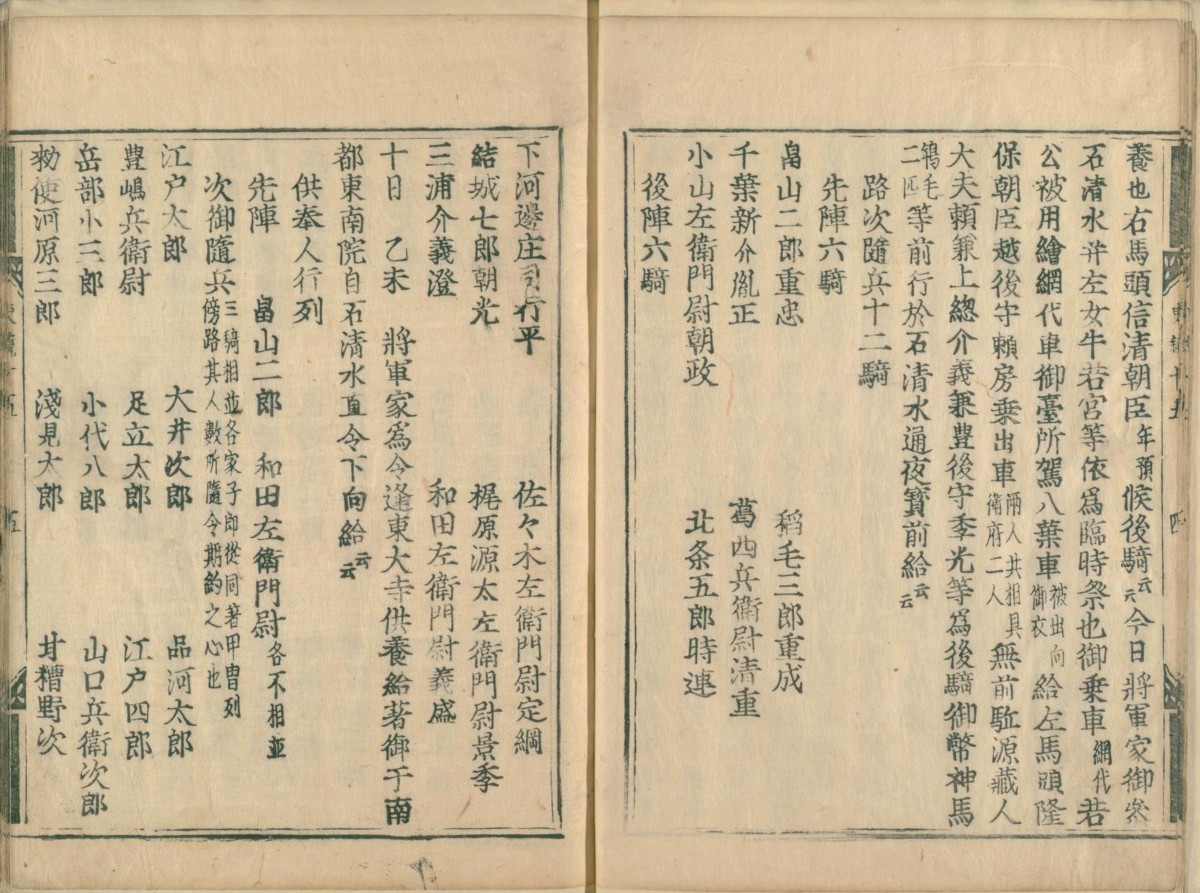 養也右馬頭信清朝臣年預候後騎云云今日將軍家御參
石清水并左女牛若宮等依爲臨時祭也御乗車網代若
公被用繪網代車御臺所駕八葉車被出向御衣給左馬頭隆
保朝臣越後守頼房乗出車兩人共相具衛府二人無前駈源藏人
大夫頼兼上総介義兼豊後守季光等爲後騎御幣神馬
鴾毛二匹等前行於石清水通夜寳前給云云
路次随兵十二騎
先陣六騎
畠山二郎重忠 稲毛三郎重成
千葉新介胤正 葛西兵衛尉清重
小山左衛門尉朝政 北条五郎時連
後陣六騎
下河邊庄司行平 佐々木左衛門尉定綱
結城七郎朝光 梶原源太左衛門尉景季
三浦介義澄 和田左衛門尉義盛
十日 乙未 將軍家爲令逢東大寺供養給著御于南
都東南院自石清水直令下向給云云
供奉人行列
先陣 畠山二郎 和田左衛門尉各不相並
次御隨兵三騎相並各家子郎從同著甲冑列傍路其人數所隨令期約之心也
江戸太郎 大井次郎 品河太郎
豊嶋兵衛尉 足立太郎 江戸四郎
岳部小三郎 小代八郎 山口兵衛次郎
勅使河原三郎 淺見太郎 甘糟野次